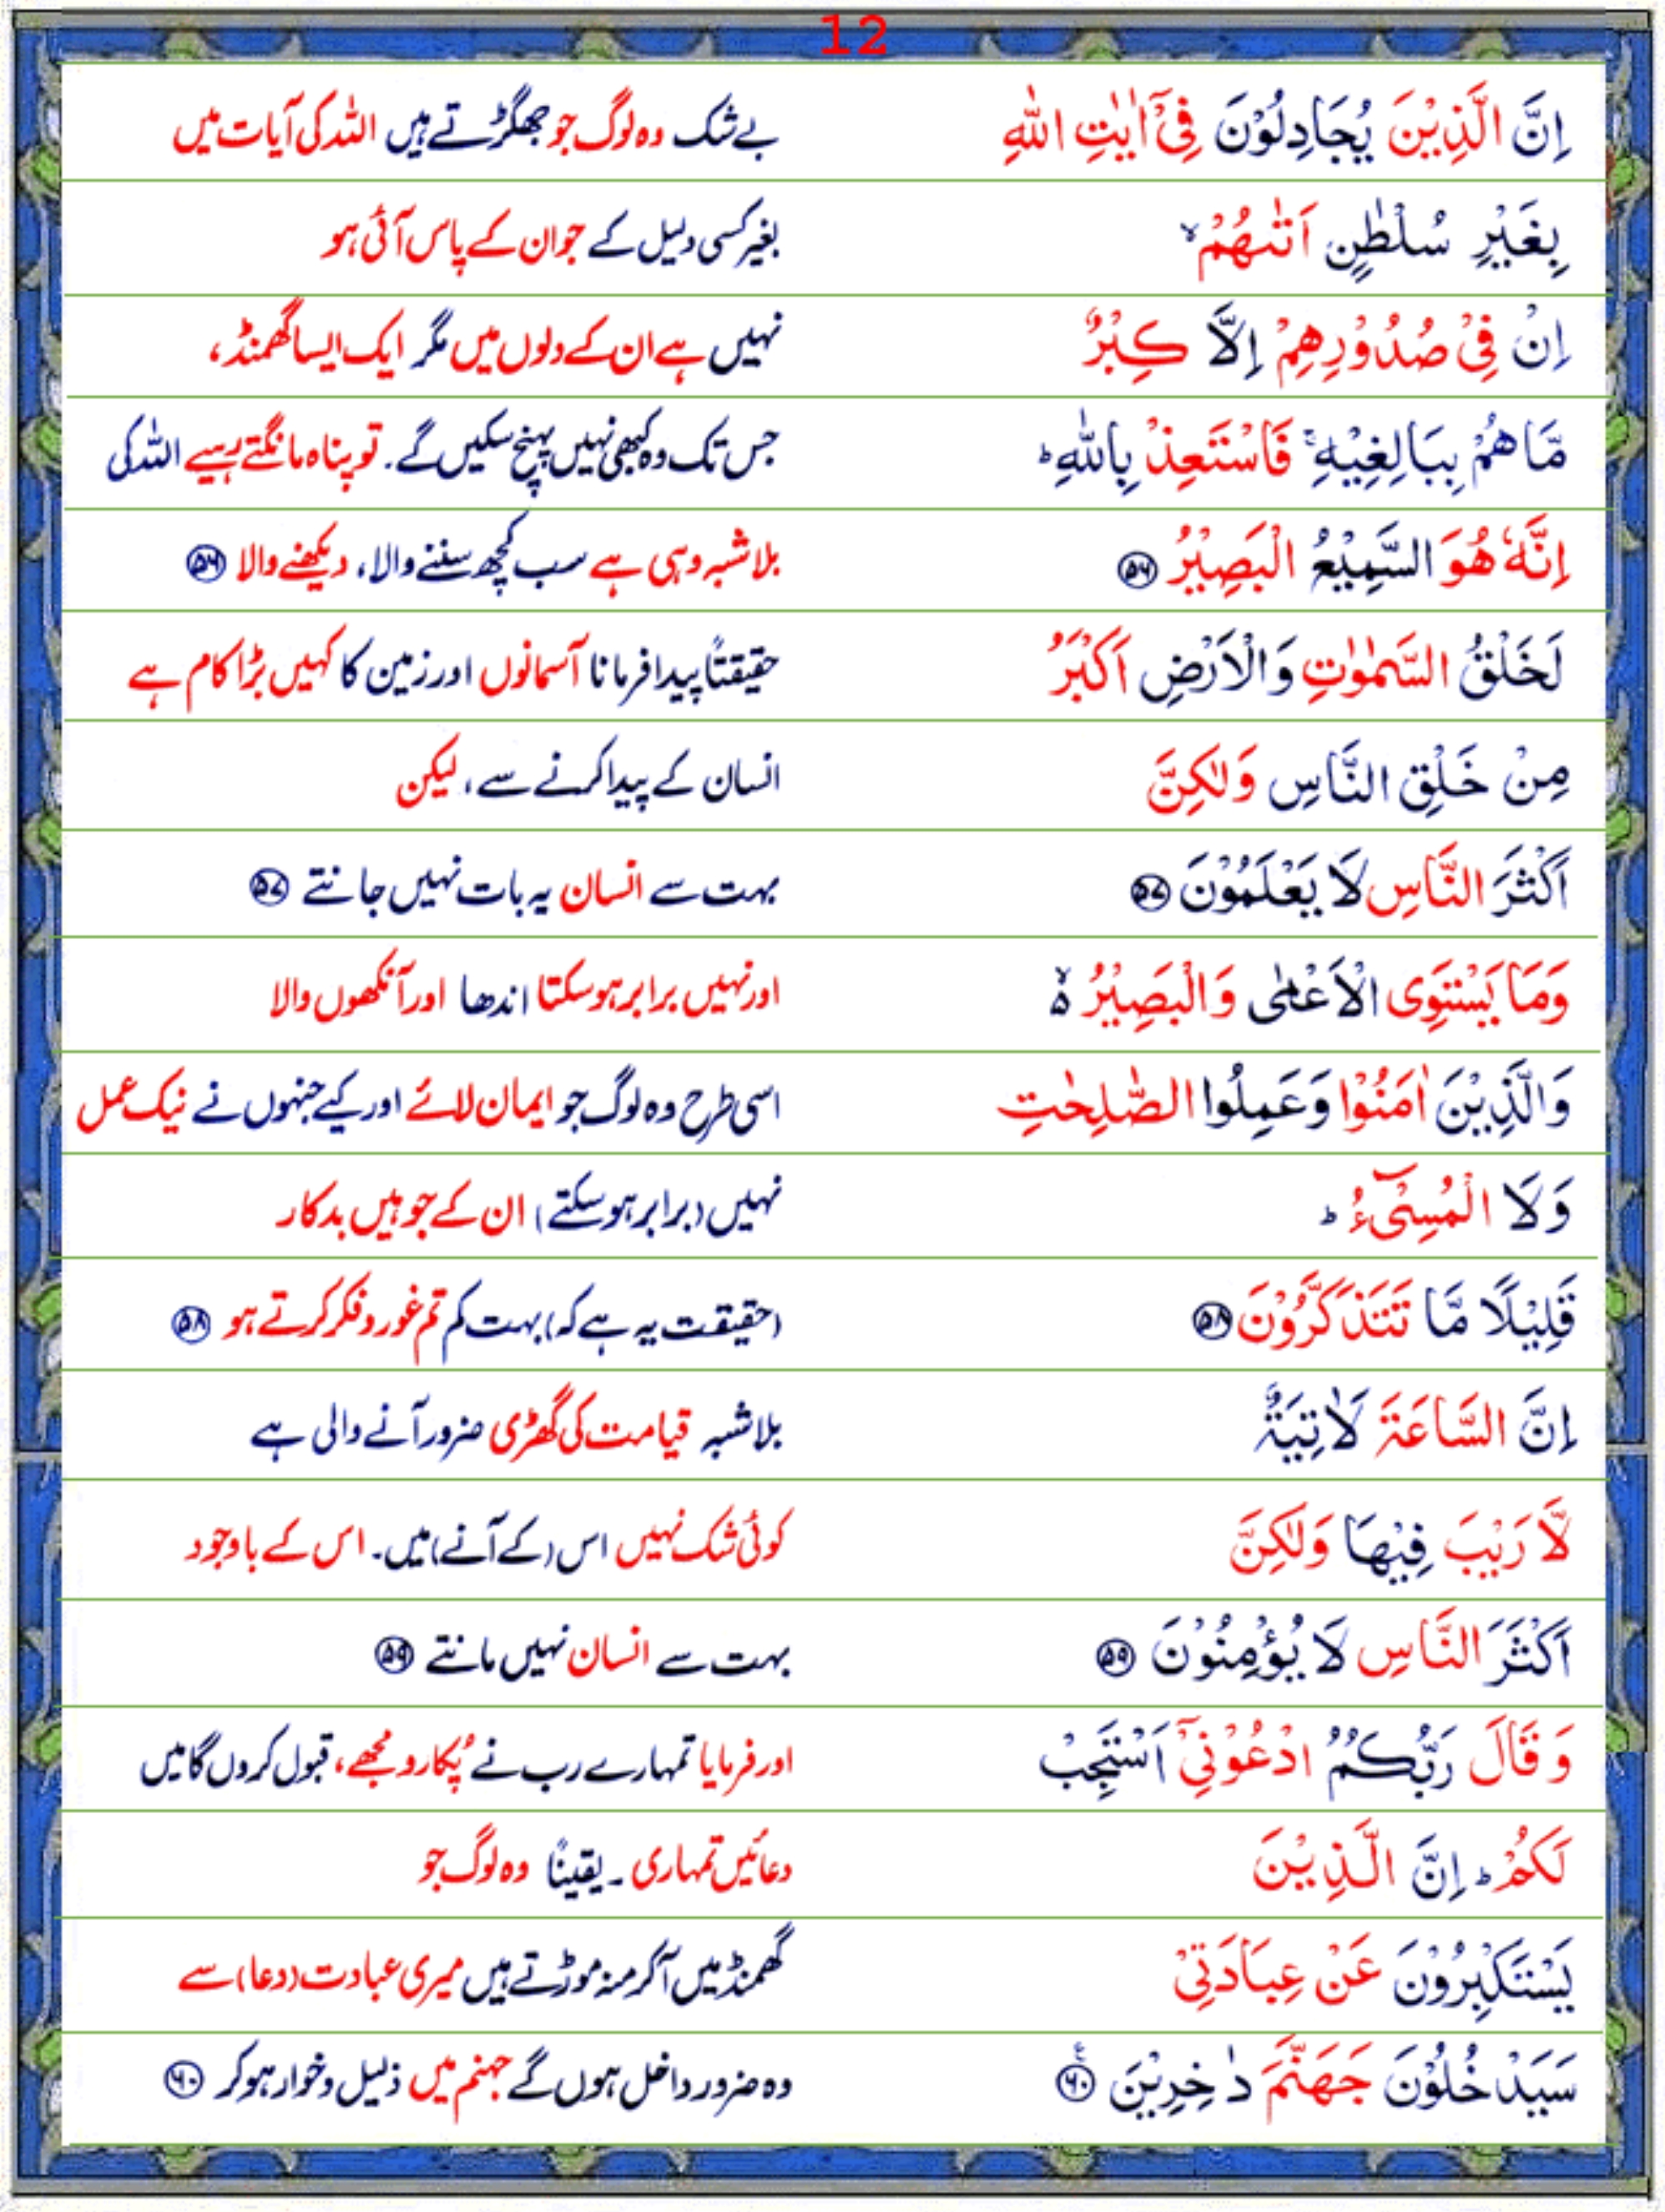 12
اِنَّ الَّذِيْنَ يُجَادِلُوْنَ فِىْٓ اٰيٰتِ اللّٰهِ بے شک وہ لوگ جو جھگڑتے ہیں اللہ کی آیات میں
بِغَيْرِ سُلْطٰنٍ اَتٰىهُمْ ۙ بغیر کسی دلیل کے جو ان کے پاس آئی ہو
اِنْ فِىْ صُدُوْرِهِمْ اِلَّا كِبْرٌ نہیں ہے ان کے دلوں میں مگر ایک ایسا گھمنڈ،
مَّا هُمْ بِبَالِغِيْهِ ۚ فَاسْتَعِذْ بِاللّٰهِ ؕ جس تک وہ کبھی نہیں پہنچ سکیں گے۔ تو پناہ مانگتے رہیے اللہ کی
اِنَّهٗ هُوَ السَّمِيْعُ الْبَصِيْرُ ۵۶ بلاشبہ وہی ہے سب کچھ سننے والا، دیکھنے والا ۵۶
لَخَلْقُ السَّمٰوٰتِ وَالْاَرْضِ اَكْبَرُ حقیقتاً پیدا فرمانا آسمانوں اور زمین کا کہیں بڑا کام ہے
مِنْ خَلْقِ النَّاسِ وَلٰكِنَّ انسان کے پیدا کرنے سے، لیکن
اَكْثَرَ النَّاسِ لَا يَعْلَمُوْنَ ۵۷ بہت سے انسان یہ بات نہیں جانتے ۵۷
وَمَا يَسْتَوِى الْاَعْمٰى وَالْبَصِيْرُ ۙ۬ اور نہیں برابر ہو سکتا اندھا اور آنکھوں والا
وَالَّذِيْنَ اٰمَنُوْا وَعَمِلُوا الصّٰلِحٰتِ اسی طرح وہ لوگ جو ایمان لائے اور کیے جنہوں نے نیک عمل
وَلَا الْمُسِىْٓءُ ؕ نہیں (برابر ہو سکتے) ان کے جو ہیں بدکار
قَلِيْلًا مَّا تَتَذَكَّرُوْنَ ۵۸ (حقیقت یہ ہے کہ) بہت کم تم غور و فکر کرتے ہو ۵۸
اِنَّ السَّاعَةَ لَاٰتِيَةٌ بلاشبہ قیامت کی گھڑی ضرور آنے والی ہے
لَّا رَيْبَ فِيْهَا وَلٰكِنَّ کوئی شک نہیں اس (کے آنے) میں۔ اس کے باوجود
اَكْثَرَ النَّاسِ لَا يُؤْمِنُوْنَ ۵۹ بہت سے انسان نہیں مانتے ۵۹
وَقَالَ رَبُّكُمُ ادْعُوْنِىْٓ اَسْتَجِبْ اور فرمایا تمہارے رب نے پُکارو مجھے، قبول کروں گا میں
لَكُمْ ؕ اِنَّ الَّذِيْنَ دعائیں تمہاری۔ یقیناً وہ لوگ جو
يَسْتَكْبِرُوْنَ عَنْ عِبَادَتِىْ گھمنڈ میں آ کر منہ موڑتے ہیں میری عبادت (دعا) سے
سَيَدْخُلُوْنَ جَهَنَّمَ دٰخِرِيْنَ ۶۰ وہ ضرور داخل ہوں گے جہنم میں ذلیل و خوار ہو کر ۶۰